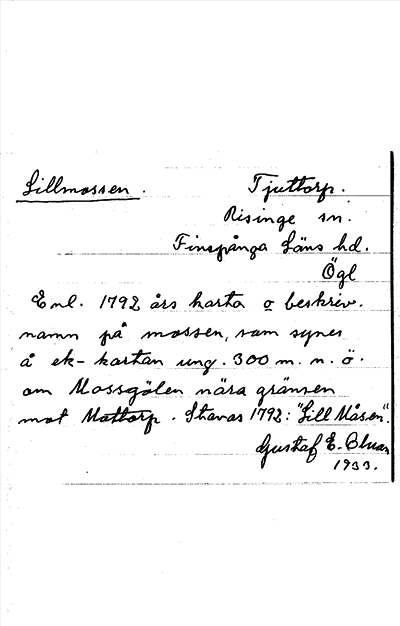 Lillmossen.
Tjuttorp.
Risinge sn.
Finspånga Läns hd.
Ögl
Enl. 1792 års karta o beskriv.
namn på mossen, som synes
å ek-kartan ung. 300 m. n. ö.
om Mossgölen nära gränsen
mot Mattorp. Stavas 1792: "Lill Måsen".
Gustaf E.
1933.